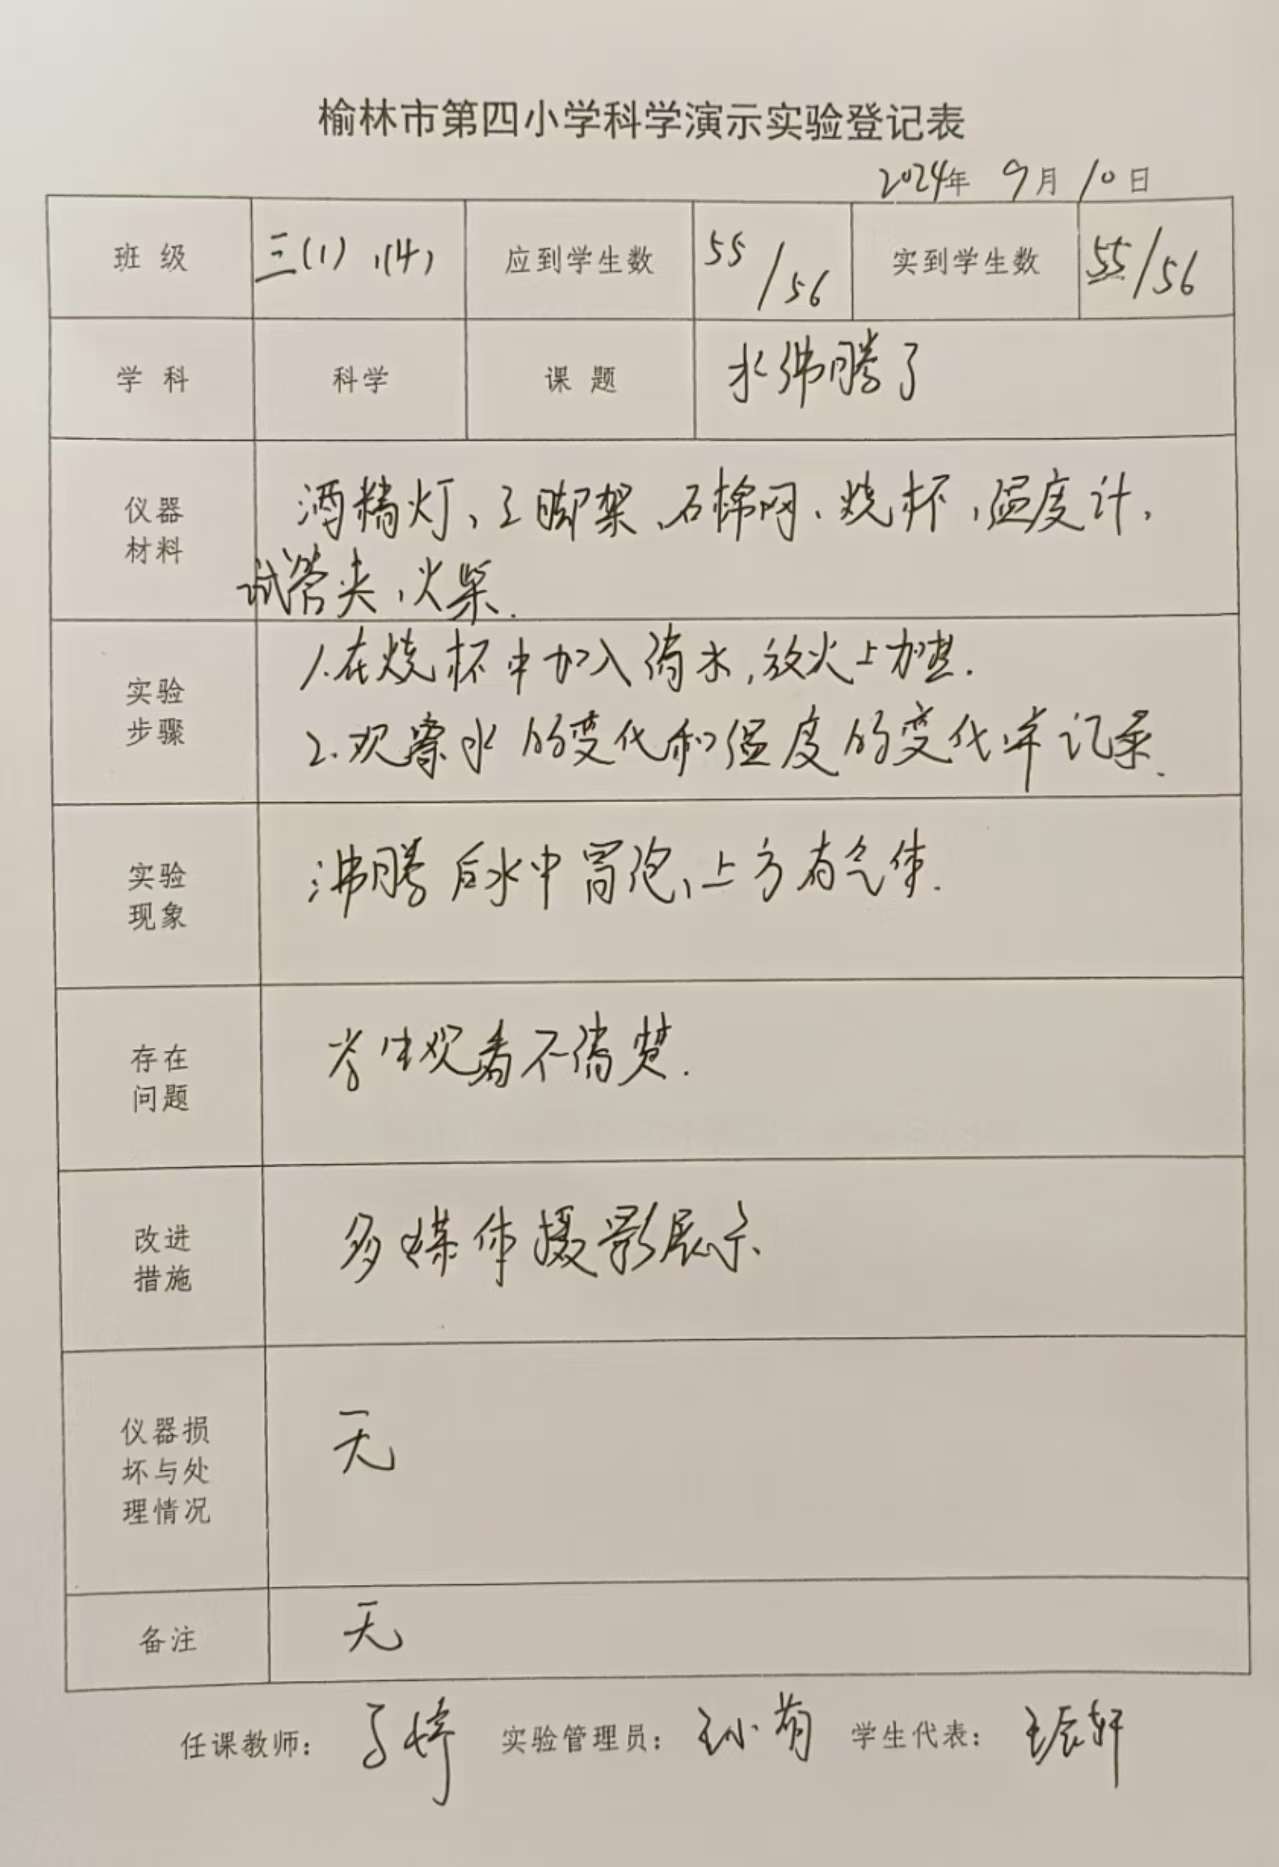 榆林市第四小学科学演示实验登记表
2024年 9月 10日
班 级 三(1)、(4) 应到学生数 55/56 实到学生数 55/56
学 科 科学 课 题 水沸腾了
仪器
材料
酒精灯、三脚架、石棉网、烧杯、温度计、
试管夹、火柴.
实验
步骤
1.在烧杯中加入清水,放火上加热.
2.观察水的变化和温度的变化并记录.
实验
现象
沸腾后水中冒泡,上方有气体.
存在
问题
学生观看不清楚.
改进
措施
多媒体摄影展示.
仪器损
坏与处
理情况
无
备注 无
任课教师: 婷 实验管理员: 王小 学生代表: 王辰轩